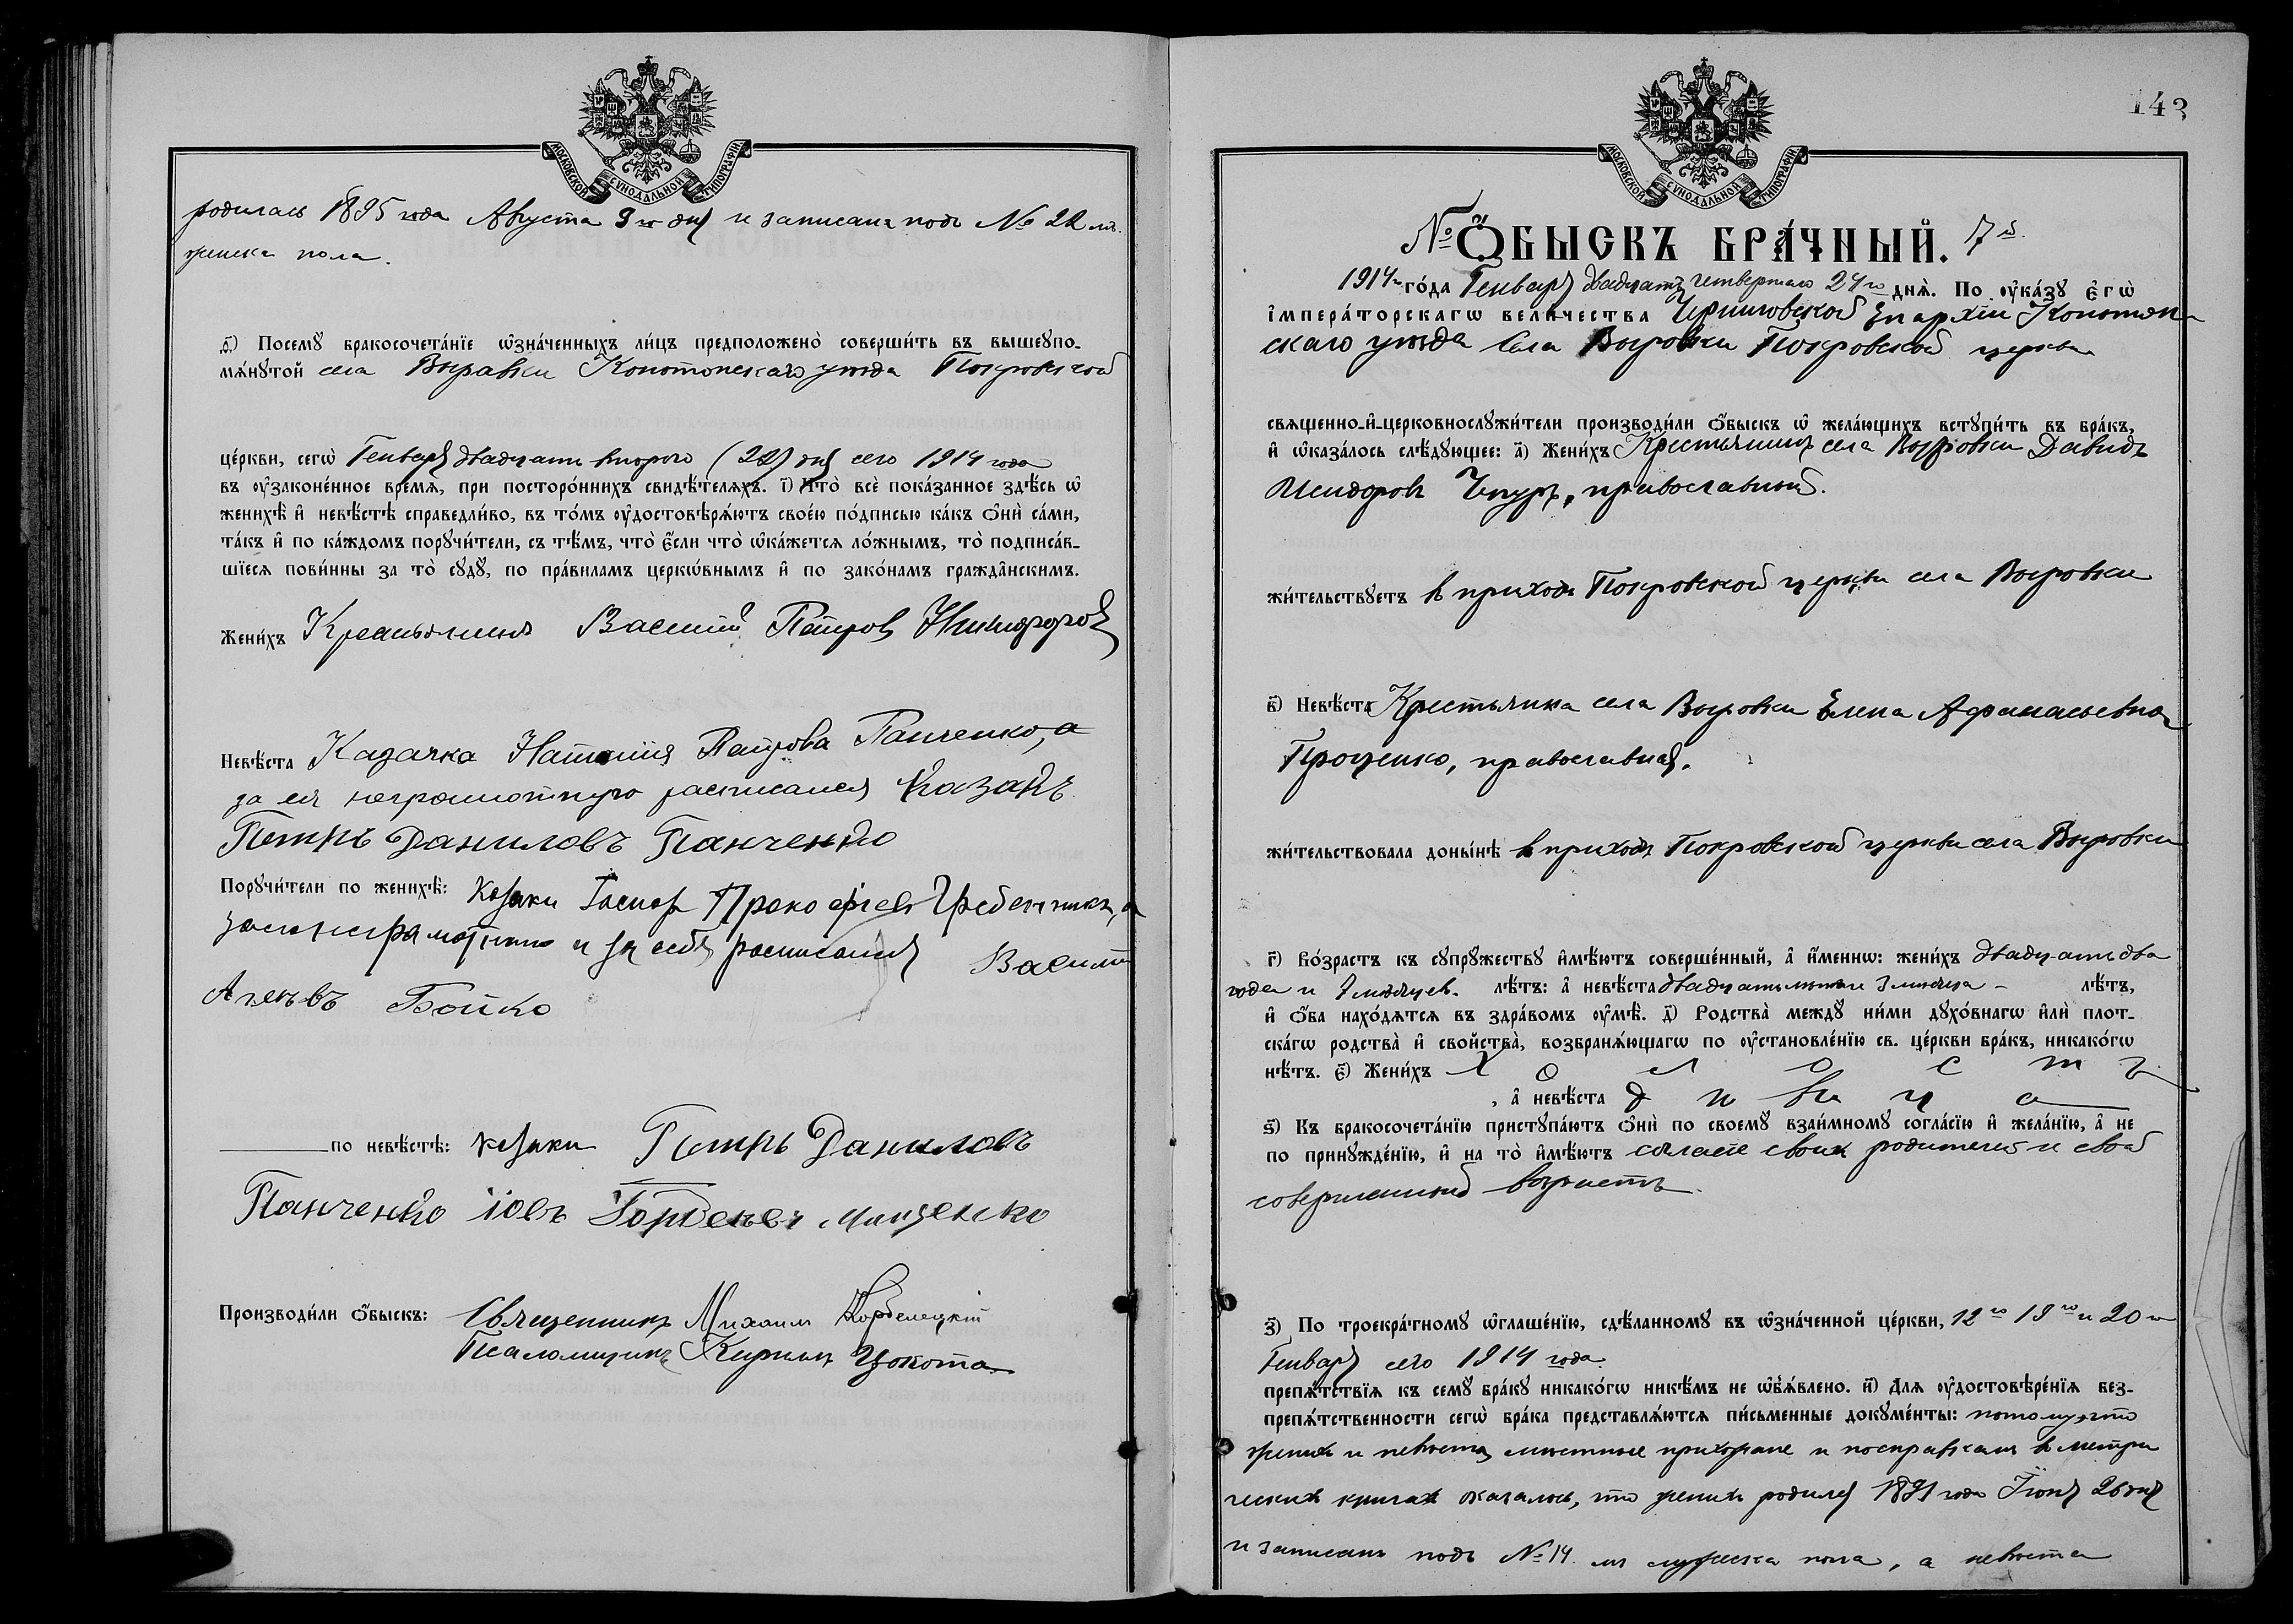 МОСКОВСКОЙ СѴНОДАЛЬНОЙ ТИПОГРАФІИ
родилась 1895 года Августа 9го дня и записана подъ № 22 м.
женска пола.
д҃і) Посемꙋ бракосочета́нїе ѡ҆зна́ченныхъ ли́цъ предположено̀ соверши́ть въ вышеꙋпо-
мѧ́нꙋтой села Выровки Конотопскаго уѣзда Покровской
це́ркви, сегѡ̀ Генваря двадцать второго (22) дня сего 1914 года
въ ᲂу҆законе́нное времѧ̀, при посторо́ннихъ свидѣ́телѧхъ. і҃) Что̀ всѐ пока́занное здѣ́сь ѡ҆
женихѣ̀ и҆ невѣ́стѣ справедли́во, въ то́мъ ᲂу҆достовѣрѧ́ютъ свое́ю по́дписью ка́къ ѻ҆нѝ са́ми,
та́къ и҆ по ка́ждомъ порꙋчи́тели, съ тѣ́мъ, что̀ є҆́сли что̀ ѡ҆ка́жетсѧ ло́жнымъ, то̀ подписа́в-
шїесѧ пови́нны за то̀ сꙋдꙋ̀, по пра́виламъ церкѡ́внымъ и҆ по зако́намъ гражда̂нскимъ.
Жени́хъ Крестьянинъ Василій Петров Никифоров
Невѣ́ста Казачка Наталія Петрова Панченко, а
за ея неграмотную расписался Казакъ
Петръ Даниловъ Панченко
Порꙋчи́тели по женихѣ̀: козаки Гаспор Прокофіев Гребенникъ, а
за неграмотного и за себя росписался Василій
Бойко
по невѣ́стѣ: козаки Петръ Даниловъ
Панченко Іовъ Гордѣевъ Мищенко
Производи́ли ѻ҆́быскъ: Священникъ Михаилъ Корбелецкій
Псаломщикъ Кирилъ Цокота
143
МОСКОВСКОЙ СѴНОДАЛЬНОЙ ТИПОГРАФІИ
№ Ѻ҆́БЫСКЪ БРА́ЧНЫЙ. 17й.
1914го го́да Генваря двадцать четвертаго 24го днѧ̀. По ᲂу҆ка́зꙋ є҆гѡ̀
і҆мпера́торскагѡ вели́чества Черниговской Епархіи Конотоп
скаго уѣзда Села Выровки Покровской церкви
свѧщенно-и҆-церковнослꙋжи́тели производи́ли ѻ҆́быскъ ѡ҆ жела́ющихъ встꙋпи́ть въ бра́къ,
и҆ ѡ҆каза́лось слѣ́дꙋющее: а҃) Жени́хъ Крестьянинъ села Выровки Давидъ
Исидоров Чпуръ, православный.
жи́тельствꙋетъ в приходѣ Покровской церкви села Выровки
в҃) Невѣ́ста Крестьянка села Выровки Елена Афанасьевна
Проценко, православная.
жи́тельствовала доны́нѣ в приходѣ Покровской церкви села Выровки
г҃) Во́зрастъ къ сꙋпрꙋ́жествꙋ и҆мѣ́ютъ соверше́нный, а҆ и҆́меннѡ: жени́хъ двадцать два
года и 7 мѣсяцев. лѣ́тъ: а҆ невѣ́ста двадцать лѣтъ и 3 мѣсяца — лѣ́тъ,
и҆ ѻ҆́ба нахо́дѧтсѧ въ здра́вомъ ᲂу҆мѣ̀. д҃) Родства̀ междꙋ̀ ни́ми дꙋхо́внагѡ и҆лѝ плот-
ска́гѡ родства̀ и҆ свойства̀, возбранѧ́ющагѡ по ᲂу҆становле́нїю св. це́ркви бра́къ, никако́гѡ
нѣ́тъ. є҃) Жени́хъ холостъ
, а҆ невѣ́ста дѣвица
ѕ҃) Къ бракосочета́нїю пристꙋпа́ютъ ѻ҆нѝ по своемꙋ̀ взаи́мномꙋ согла́сїю и҆ жела́нїю, а҆ не
по принꙋжде́нїю, и҆ на то̀ и҆мѣ́ютъ согласіе своих родителей и свой
совершенный возрастъ.
з҃) По троекра́тномꙋ ѡ҆глаше́нїю, сдѣ́ланномꙋ въ ѡ҆зна́ченной це́ркви, 12го 19го и 20го
Генваря сего 1914 года
препѧ́тствїѧ къ семꙋ̀ бра́кꙋ никако́гѡ никѣ́мъ не ѡ҆б̾ѧ́влено. и҃) Длѧ ᲂу҆достовѣре́нїѧ без-
препѧ́тственности сегѡ̀ бра́ка представлѧ́ютсѧ пи́сьменные докꙋме́нты: потому что
жених и невѣста мѣстные прихожане и посправкам в метри
ческих книгах оказалось, что жених родился 1891 года Іюня 26 дня
и записанъ подъ № 14 м. мужеска пола, а невѣста